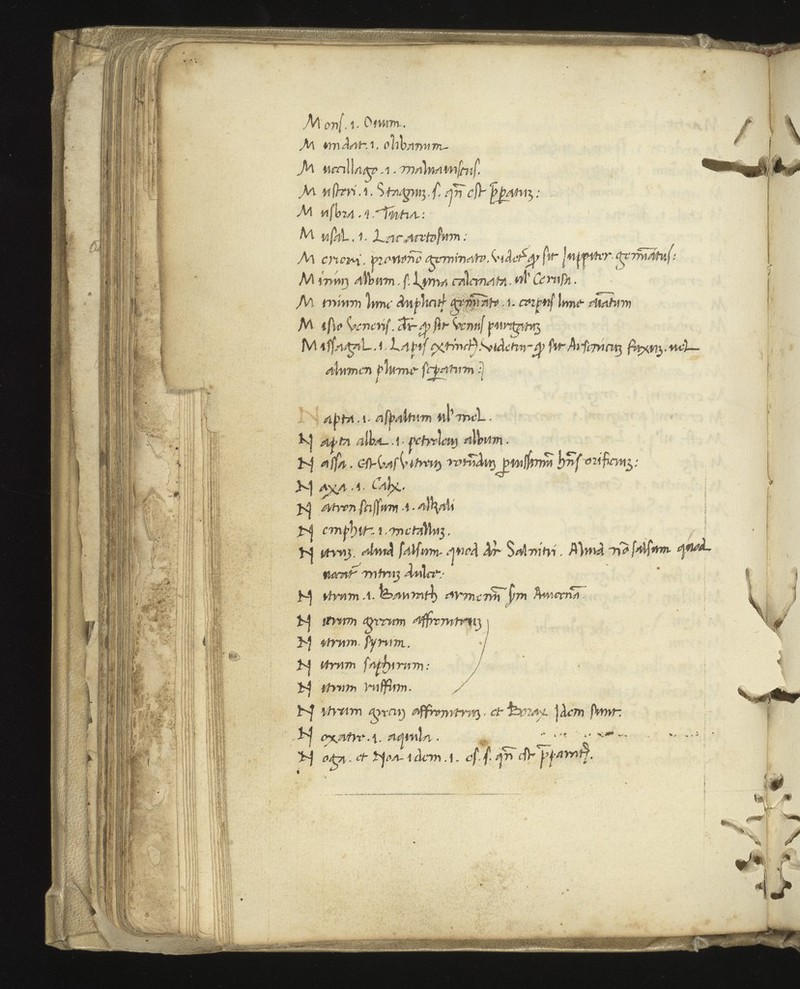 Mons .1. Ouum.
Mundat .1. olibanum
Mucillago .1. maluauiscus.
Musteri .1. Stagnuz .s. qn̄ est p̄paratuz:
Musbra .1. Tutia:
Musal .1. Lac acetosum:
geminato. videtr̄ qp sit Juppiter geminatus:
Miniuz album .s. Luna calcinata. ul' Cerusa.
Minium lune duplicit geminate .1. corpus lune
Misio veneris. dr̄ qp sit venus purgatuz
Missagal .1. Lapis videtur qp sit Arsenicuz fixuz. uel
alumen plume seperatum:

Napta .1. aspaltum ul' mel.
Napta alba .1. petroleuz album.
Nassa. est vas vitreuz rotunduz hn̄s orificiuz:
Naxa .1. Calx.
Natron .1. alkali
Nemphit .1. metalluz.
Nitruz. aliud salsum. quod dr̄ Salnitri. Aliud nō salsum quod
uocat nitruz dulce:
Nitrum .1. Baurach armenū Auicenā
Nitrum grecum affronitruz
Nitrum. syrum.
Nitrum saphirum:
Nitrum ruffum.
Nitrum grecuz affronitruz. et Borax Idem sunt.
Noxatre .1. aquila.
Noga. et Noa idem .1. es. s. qn̄ est